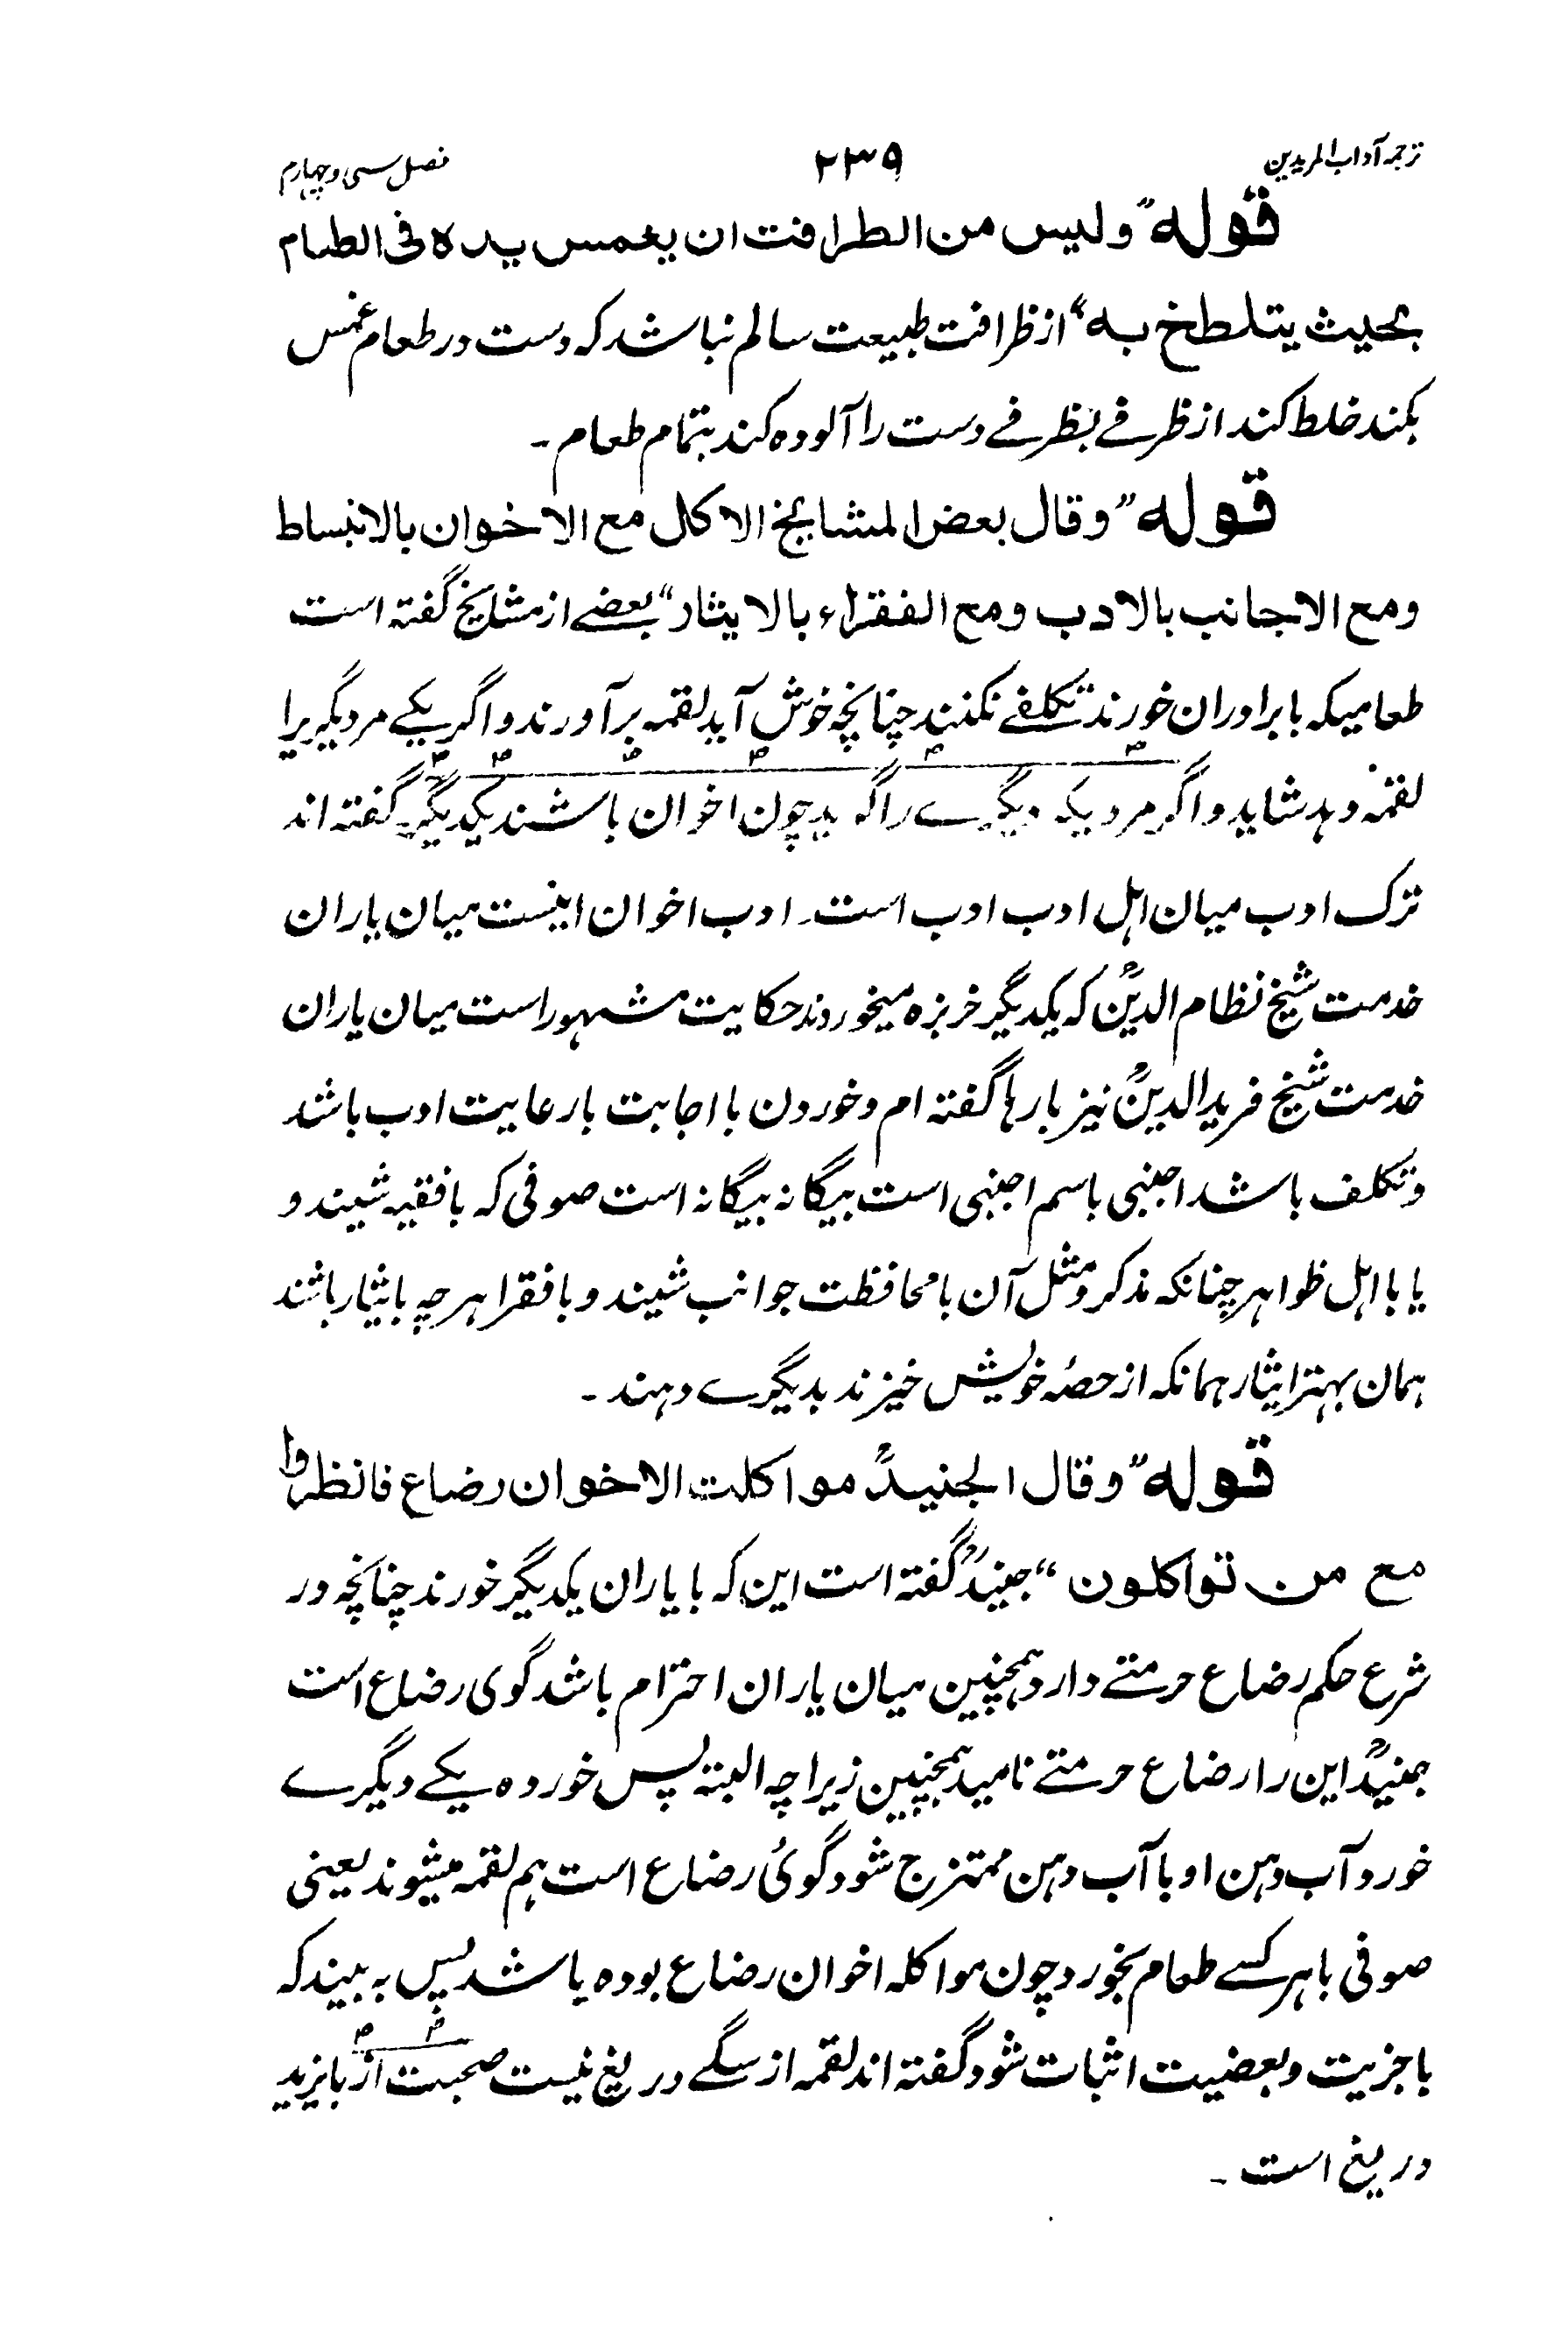 ترجمہ آداب المریدین ۲۳۹ فصل سی و چہارم
قولہ ”ولیس من الظرافت ان یغمس یدہ فی الطعام
بحیث یتلطخ بہ“ از ظرافت طبیعت سالم نباشد کہ دست در طعام غمس
بکند خلط کند از ظرفے بظرفے دست را آلودہ کند بتمام طعام۔
قولہ ”وقال بعض المشایخ الاکل مع الاخوان بالانبساط
ومع الاجانب بالادب ومع الفقراء بالایثار“ بعضے از مشایخ گفتہ است
طعامیکہ با برادران خورند تکلفے نکنند چنانچہ خوش آید لقمہ برآورند و اگر یکے مر دیگریرا
لقمہ دہد شاید و اگر مردیکہ دیگرے را گہ چون اخوان باشند یکدیگر گفتہ اند
ترک ادب میان اہل ادب ادب است۔ ادب اخوان اینست میان یاران
خدمت شیخ نظام الدینؒ کہ یکدیگر خربزہ میخوردند حکایت مشہور است میان یاران
خدمت شیخ فرید الدینؒ نیز بارہا گفتہ ام و خوردن با اجابت با رعایت ادب باشد
و تکلف باشد اجنبی باسم اجنبی است بیگانہ بیگانہ است صوفی کہ با فقیہ شیند و
یا با اہل ظواہر چنانکہ مذکر و مثل آن با محافظت جوانب شیند و با فقرا ہرچہ بایثار باشند
ہمان بہتر ایثار ہمانکہ از حصۂ خویش خیزند بدیگرے دہند۔
قولہ ”وقال الجنیدؒ مواکلت الاخوان رضاع فانظروا
مع من تواکلون“ جنیدؒ گفتہ است این کہ با یاران یکدیگر خورند چنانچہ در
شرع حکم رضاع حرمتے دارد ہمچنین میان یاران احترام باشد گوی رضاع است
جنیدؒ این را رضاع حرمتے نامید ہمچنین زیراچہ البتہ پس خوردہ یکے دیگرے
خورد آب دہن او با آب دہن ممتزج شود گوئ رضاع است ہم لقمہ میشوند یعنی
صوفی با ہر کسے طعام بخورد چون مواکلہ اخوان رضاع بودہ باشد پس بہ بیند کہ
با جزیت و بعضیت اثبات شود گفتہ اند لقمہ از سگے دریغ نیست صحبت از بایزید
دریغ است۔